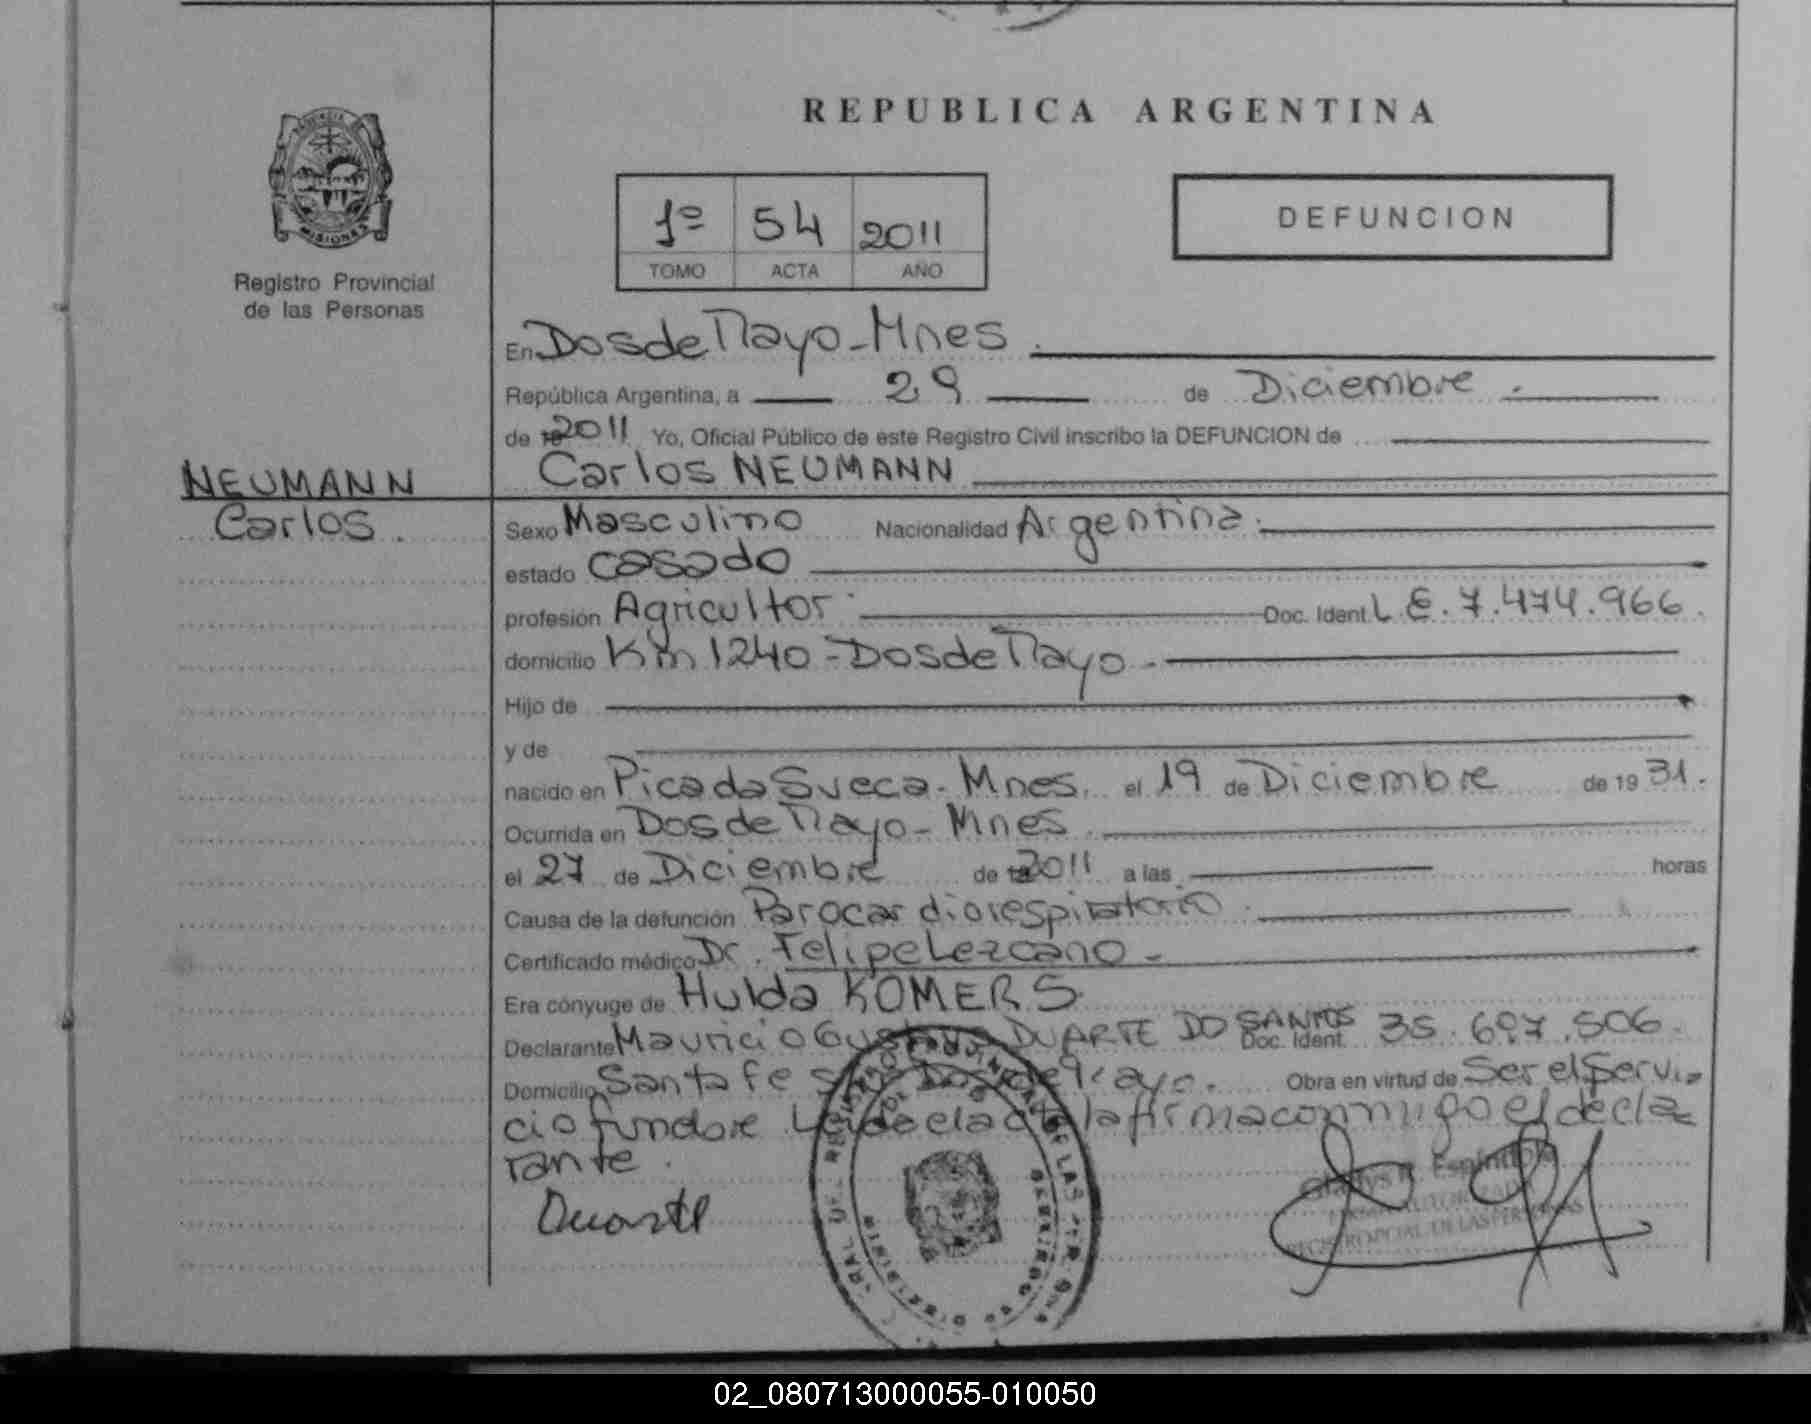 REPUBLICA ARGENTINA
MISIONES
Registro Provincial
de las Personas
1º 54 2011
TOMO ACTA AÑO
DEFUNCION
En Dos de Mayo - Mnes.
República Argentina, a 29 de Diciembre.
de 19 2011 Yo, Oficial Público de este Registro Civil inscribo la DEFUNCION de
Carlos NEUMANN
NEUMANN
Carlos.
Sexo Masculino Nacionalidad Argentina.
estado casado
profesión Agricultor Doc. Ident. L.E. 7.474.966.
domicilio Km 1240 - Dos de Mayo.-
Hijo de
y de
nacido en Picada Sueca - Mnes. el 19 de Diciembre de 19 31.
Ocurrida en Dos de Mayo - Mnes
el 27 de Diciembre de 19 2011 a las horas
Causa de la defunción Parocardiorespiratorio.
Certificado médico Dr. Felipe Lezcano -
Era cónyuge de Hulda KOMERS
Declarante Mauricio Gustavo DUARTE DO SANTOS Doc. Ident. 35.697.506.
Domicilio Santa fe Dos de Mayo. Obra en virtud de Ser el servi-
cio funebre la firma conmigo el decla-
rante.
Duarte
Gladys Espindola
02_080713000055-010050